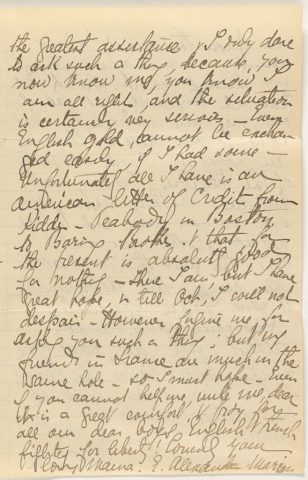 the greatest assistance. I only dare
to ask such a thing because, you
now know me, you know I
am all right and the situation
is certainly very serious – Even
English gold cannot be exchan
ged easily if I had some –
Unfortunately all I have is an
American letter of Credit from
Kidder – Peabody in Boston
to Baring Brothers & that for
the present is absolutely good
for nothing – there I am! but I have
great hope, & till Oct, I could not
despair – However forgive me for
asking you such a thing; but my
friends in France are much in the
same hole – so I must hope – Even
if you cannot help me, write me, dear
It is a great comfort & pray for
all our dear boys, English & French
fighting for liberty! Loving
Mama! J. Alexander Marius